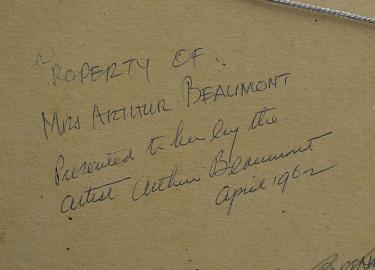 PROPERTY OF
MRS ARTHUR BEAUMONT
Presented to her by the
artist Arthur Beaumont
April 1962